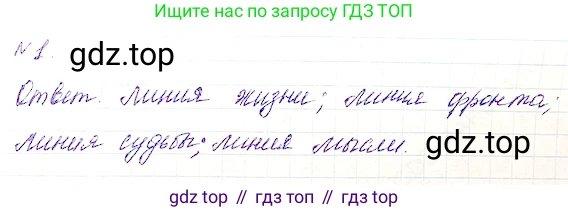 Ищите нас по запросу ГДЗ ТОП
№ 1. gdz.top
Ответ: линия жизни; линия фронта;
линия судьбы; линия мысли. gdz.top
gdz.top // гдз топ // гдз.топ